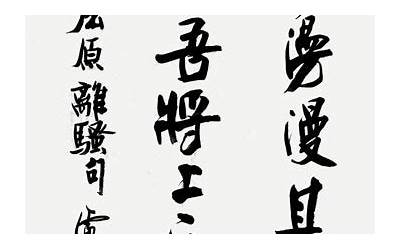 漫漫
吾將上
原離騷句